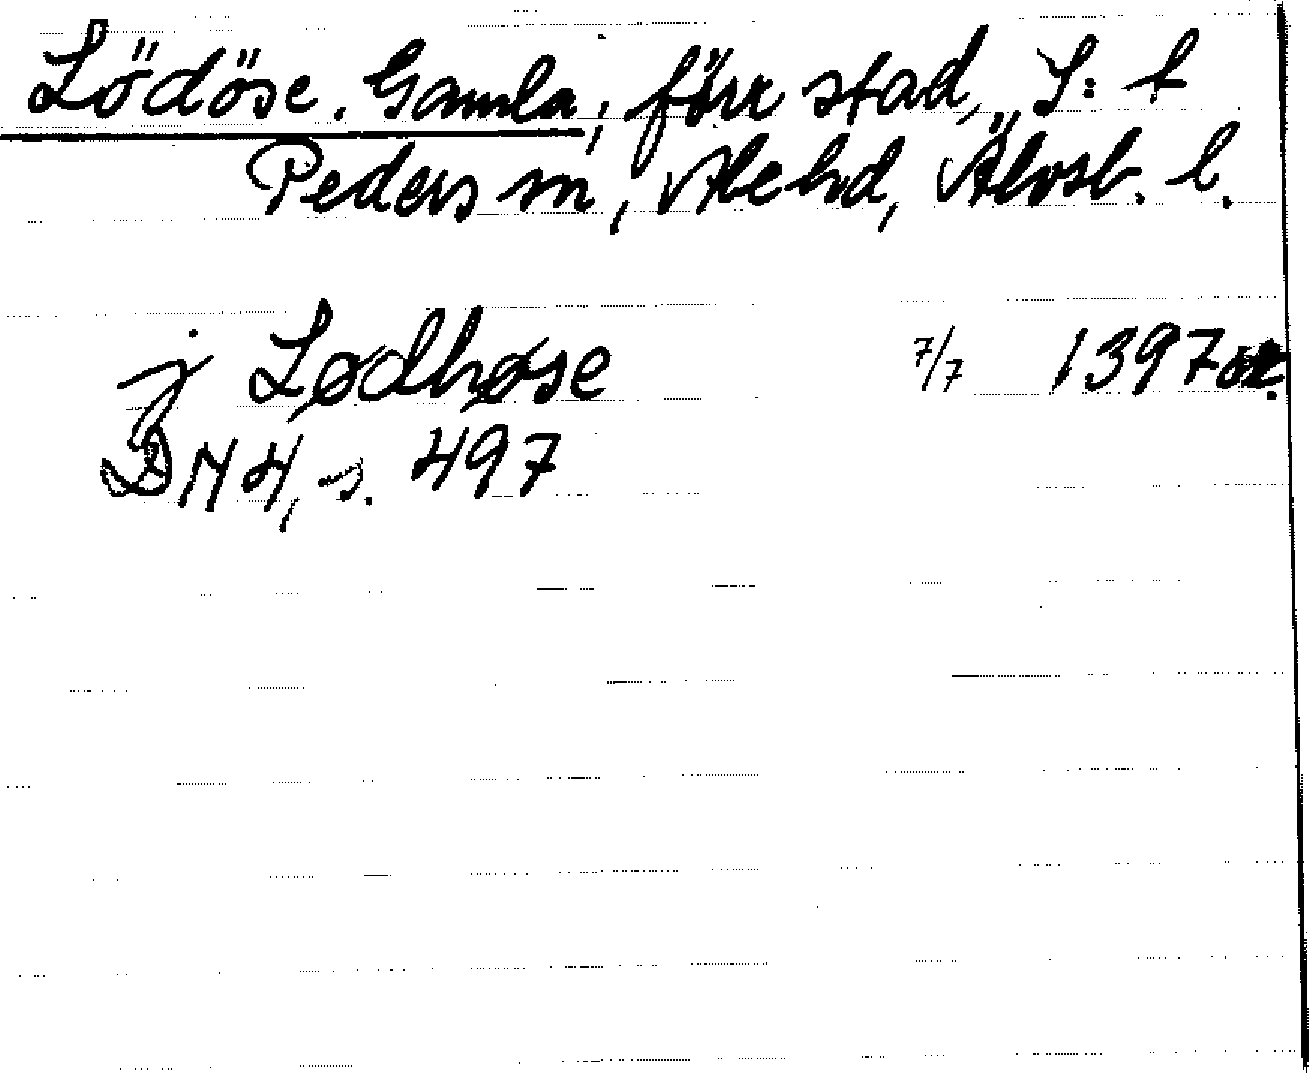 Lödöse. Gamla, förr stad, S:t
Peders sn, Ale hd, Älvsb. l.
j Lødhøse 7/7 1397 or.
DN 4, s. 497